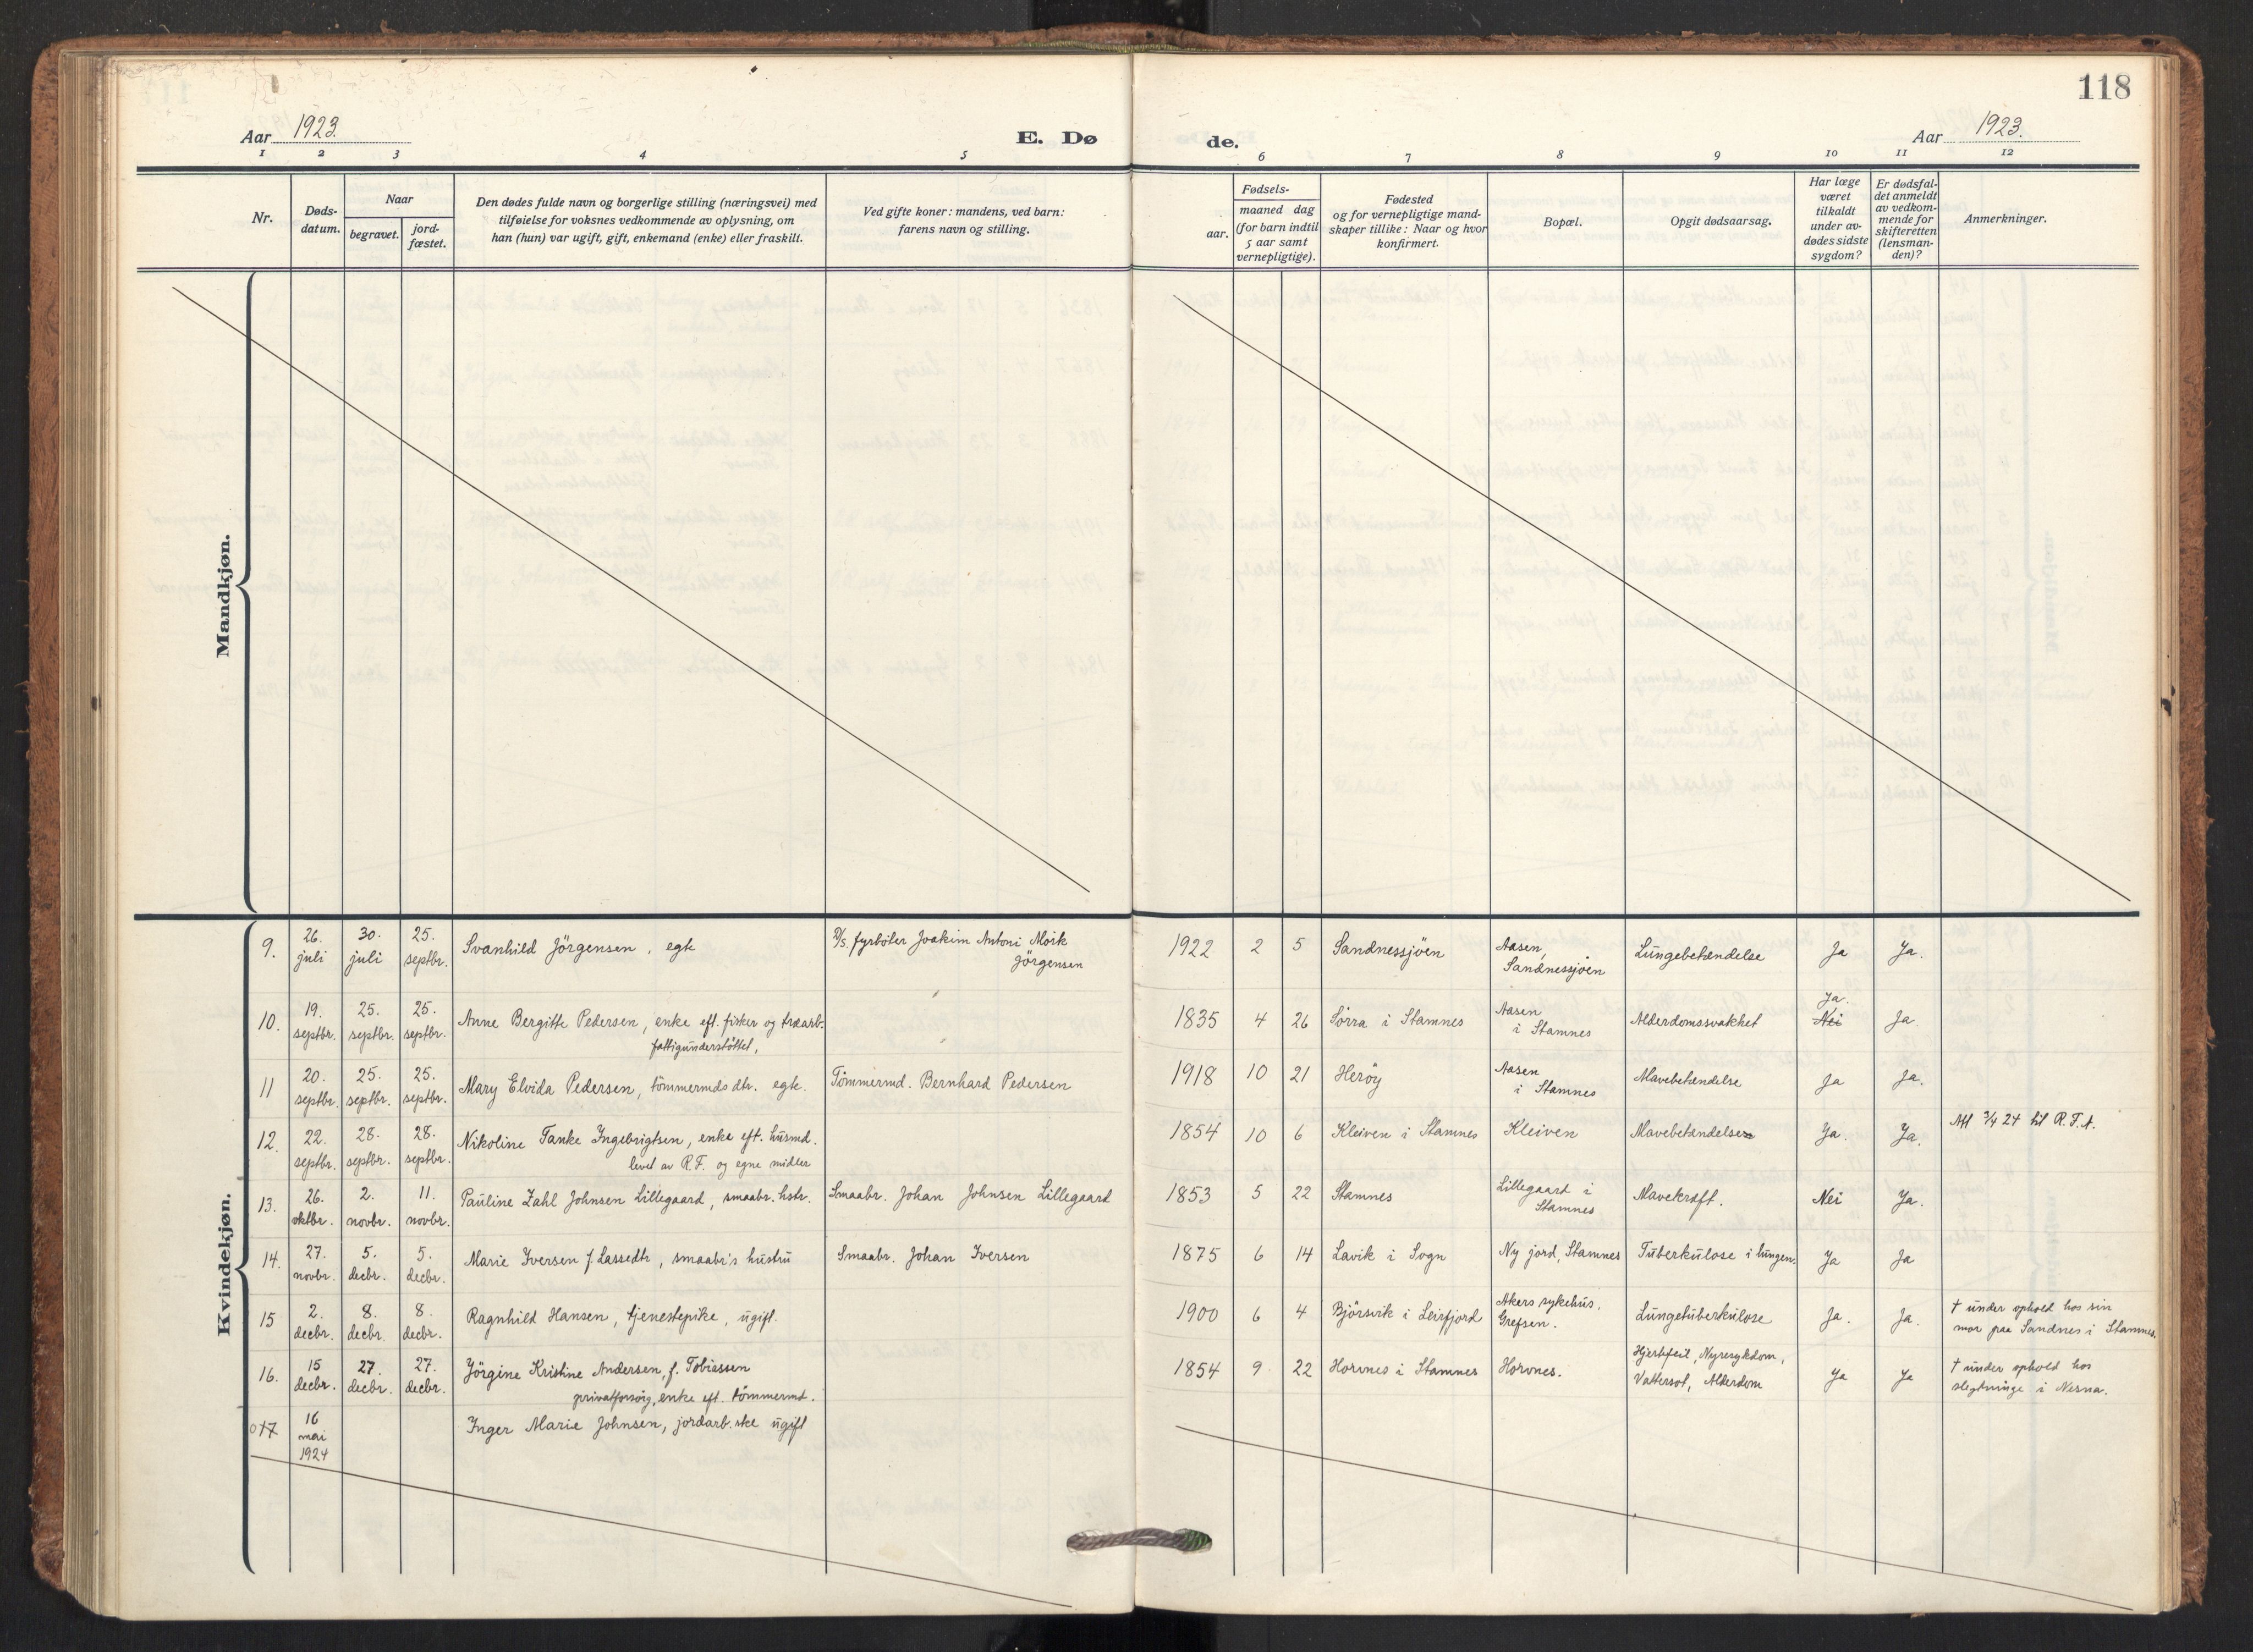 118
Aar 1923.
E. Dø
de.
Aar 1923.
1 2 3 4 5 6 7 8 9 10 11 12
Nr.
Døds-
datum.
Naar
begravet.
jord-
fæstet.
Den dødes fulde navn og borgerlige stilling (næringsvei) med
tilføielse for voksnes vedkommende av oplysning, om
han (hun) var ugift, gift, enkemand (enke) eller fraskilt.
Ved gifte koner: mandens, ved barn:
farens navn og stilling.
aar.
Fødsels-
maaned dag
(for barn indtil
5 aar samt
vernepligtige).
Fødested
og for vernepligtige mand-
skaper tillike: Naar og hvor
konfirmert.
Bopæl.
Opgit dødsaarsag.
Har læge
været
tilkaldt
under av-
dødes sidste
sygdom?
Er dødsfal-
det anmeldt
av vedkom-
mende for
skifteretten
(lensman-
den)?
Anmerkninger.
Mandkjøn.
Kvindekjøn.
9. 26. juli 30. juli 25. septbr. Svanhild Jörgensen, egte D/S. fyrböter Joakim Antoni Mörk
Jörgensen
1922 2 5 Sandnessjöen Aasen,
Sandnessjöen Lungebetændelse Ja Ja.
10. 19. septbr. 25. septbr. 25. septbr. Anne Bergitte Pedersen, enke eft. fisker og træarb.
fattigunderstöttet,
1835 4 26 Sörra i Stamnes Aasen
i Stamnes Alderdomssvakhet Ja. Nei Ja
11 20. septbr. 25. septbr. 25. septbr. Mary Elvida Pedersen, tömmermds dtr. egte. Tömmermd. Bernhard Pedersen
1918 10 21 Heröy Aasen
i Stamnes Mavebetændelse Ja Ja.
12. 22. septbr. 28. septbr. 28. septbr. Nikoline Tanke Ingebrigtsen, enke eft. husmd.
levet av R.F. og egne midler
1854 10 6 Kleiven i Stamnes Kleiven Mavebetændelse Ja. Ja. 3/4 24 til R.T.A.
13. 26. oktbr. 2. novbr. 11. novbr. Pauline Zahl Johnsen Lillegaard, smaabr. hstr. Smaabr. Johan Johnsen Lillegaard
1853 5 22 Stamnes Lillegaard i
Stamnes Mavekræft. Nei Ja.
14. 27. novbr. 5. decbr. 5. decbr. Marie Iversen f. Lassedtr, smaabr's hustru Smaabr. Johan Iversen
1875 6 14 Lavik i Sogn Ny jord, Stamnes Tuberkulose i lungen. Ja Ja
15 2. decbr. 8. decbr. 8. decbr. Ragnhild Hansen, tjenestepike, ugift.
1900 6 4 Björsvik i Leirfjord Akers sykehus,
Grefsen. Lungetuberkulose Ja. Ja. † under ophold hos sin
mor paa Sandnes i Stamnes.
16. 15 decbr. 27. decbr. 27. decbr. Jörgine Kristine Andersen, f. Tobiassen
privatforsörg, enke eft. tömmermd.
1854 9 22 Horvnes i Stamnes Horvnes. Hjertefeil, Nyresykdom,
Vattersot, Alderdom Ja Ja † under ophold hos
slegtninge i Nesna.
017 16 mai 1924 Inger Marie Johnsen, jordarb.ske ugift